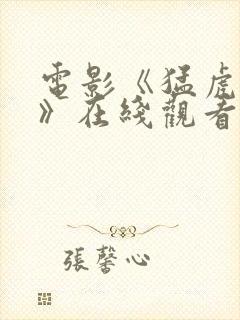 電影《猛虎
》在綫觀看
張馨心